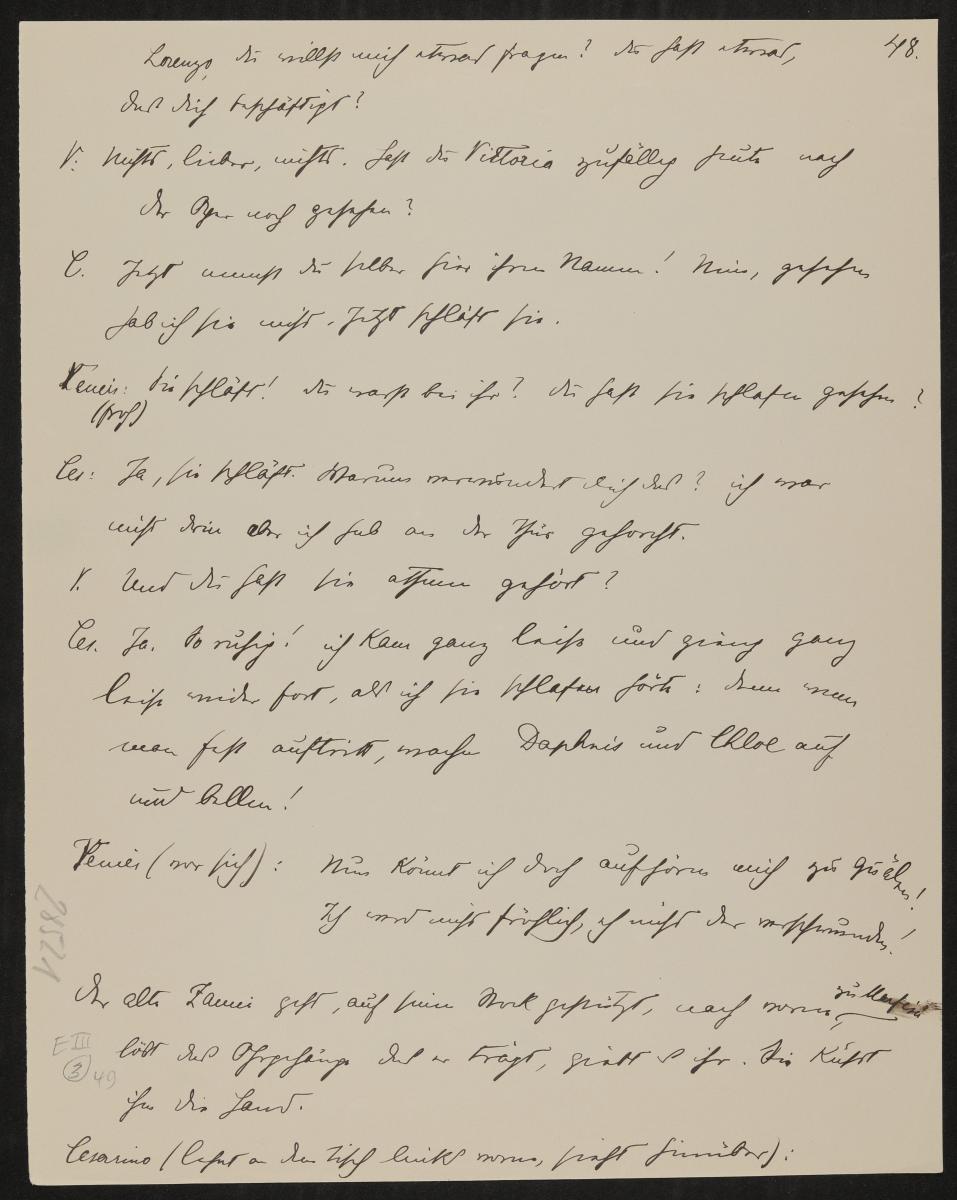 48.
Lorenzo, du willst mich etwas fragen? du hast etwas,
das dich beschäftigt?
V: Nichts, lieber, nichts. Hast du Vittoria zufällig heute nach
der Oper noch gesehen?
C. Jetzt nennst du selber hier ihren Namen! Nein, gesehen
hab ich sie nicht. Jetzt schläft sie.
Venier: Sie schläft! du warst bei ihr? du hast sie schlafen gesehen?
(froh)
Ces: Ja, sie schläft. Warum verwundert dich das? ich war
nicht drin aber ich hab an der Thür gehorcht.
V. Und du hast sie athmen gehört?
Ces. Ja. So ruhig! ich kam ganz leise und gieng ganz
leise wieder fort, als ich sie schlafen hörte: denn wenn
man fest auftritt, wachen Daphnis und Chloe auf
und bellen!
Venier (vor sich): Nun könnt ich doch aufhören mich zu quälen!
Ich werd nicht fröhlich, eh nicht der verschwunden!
der alte Zanni geht, auf seinen Stock gestützt, nach vorne, zu Marfisa
löst das Ohrgehänge das er trägt, giebt es ihr. Sie küsst
ihm die Hand.
Cesarino (lehnt an dem Tisch links vorne, sieht hinüber):
28521
E III
3 49